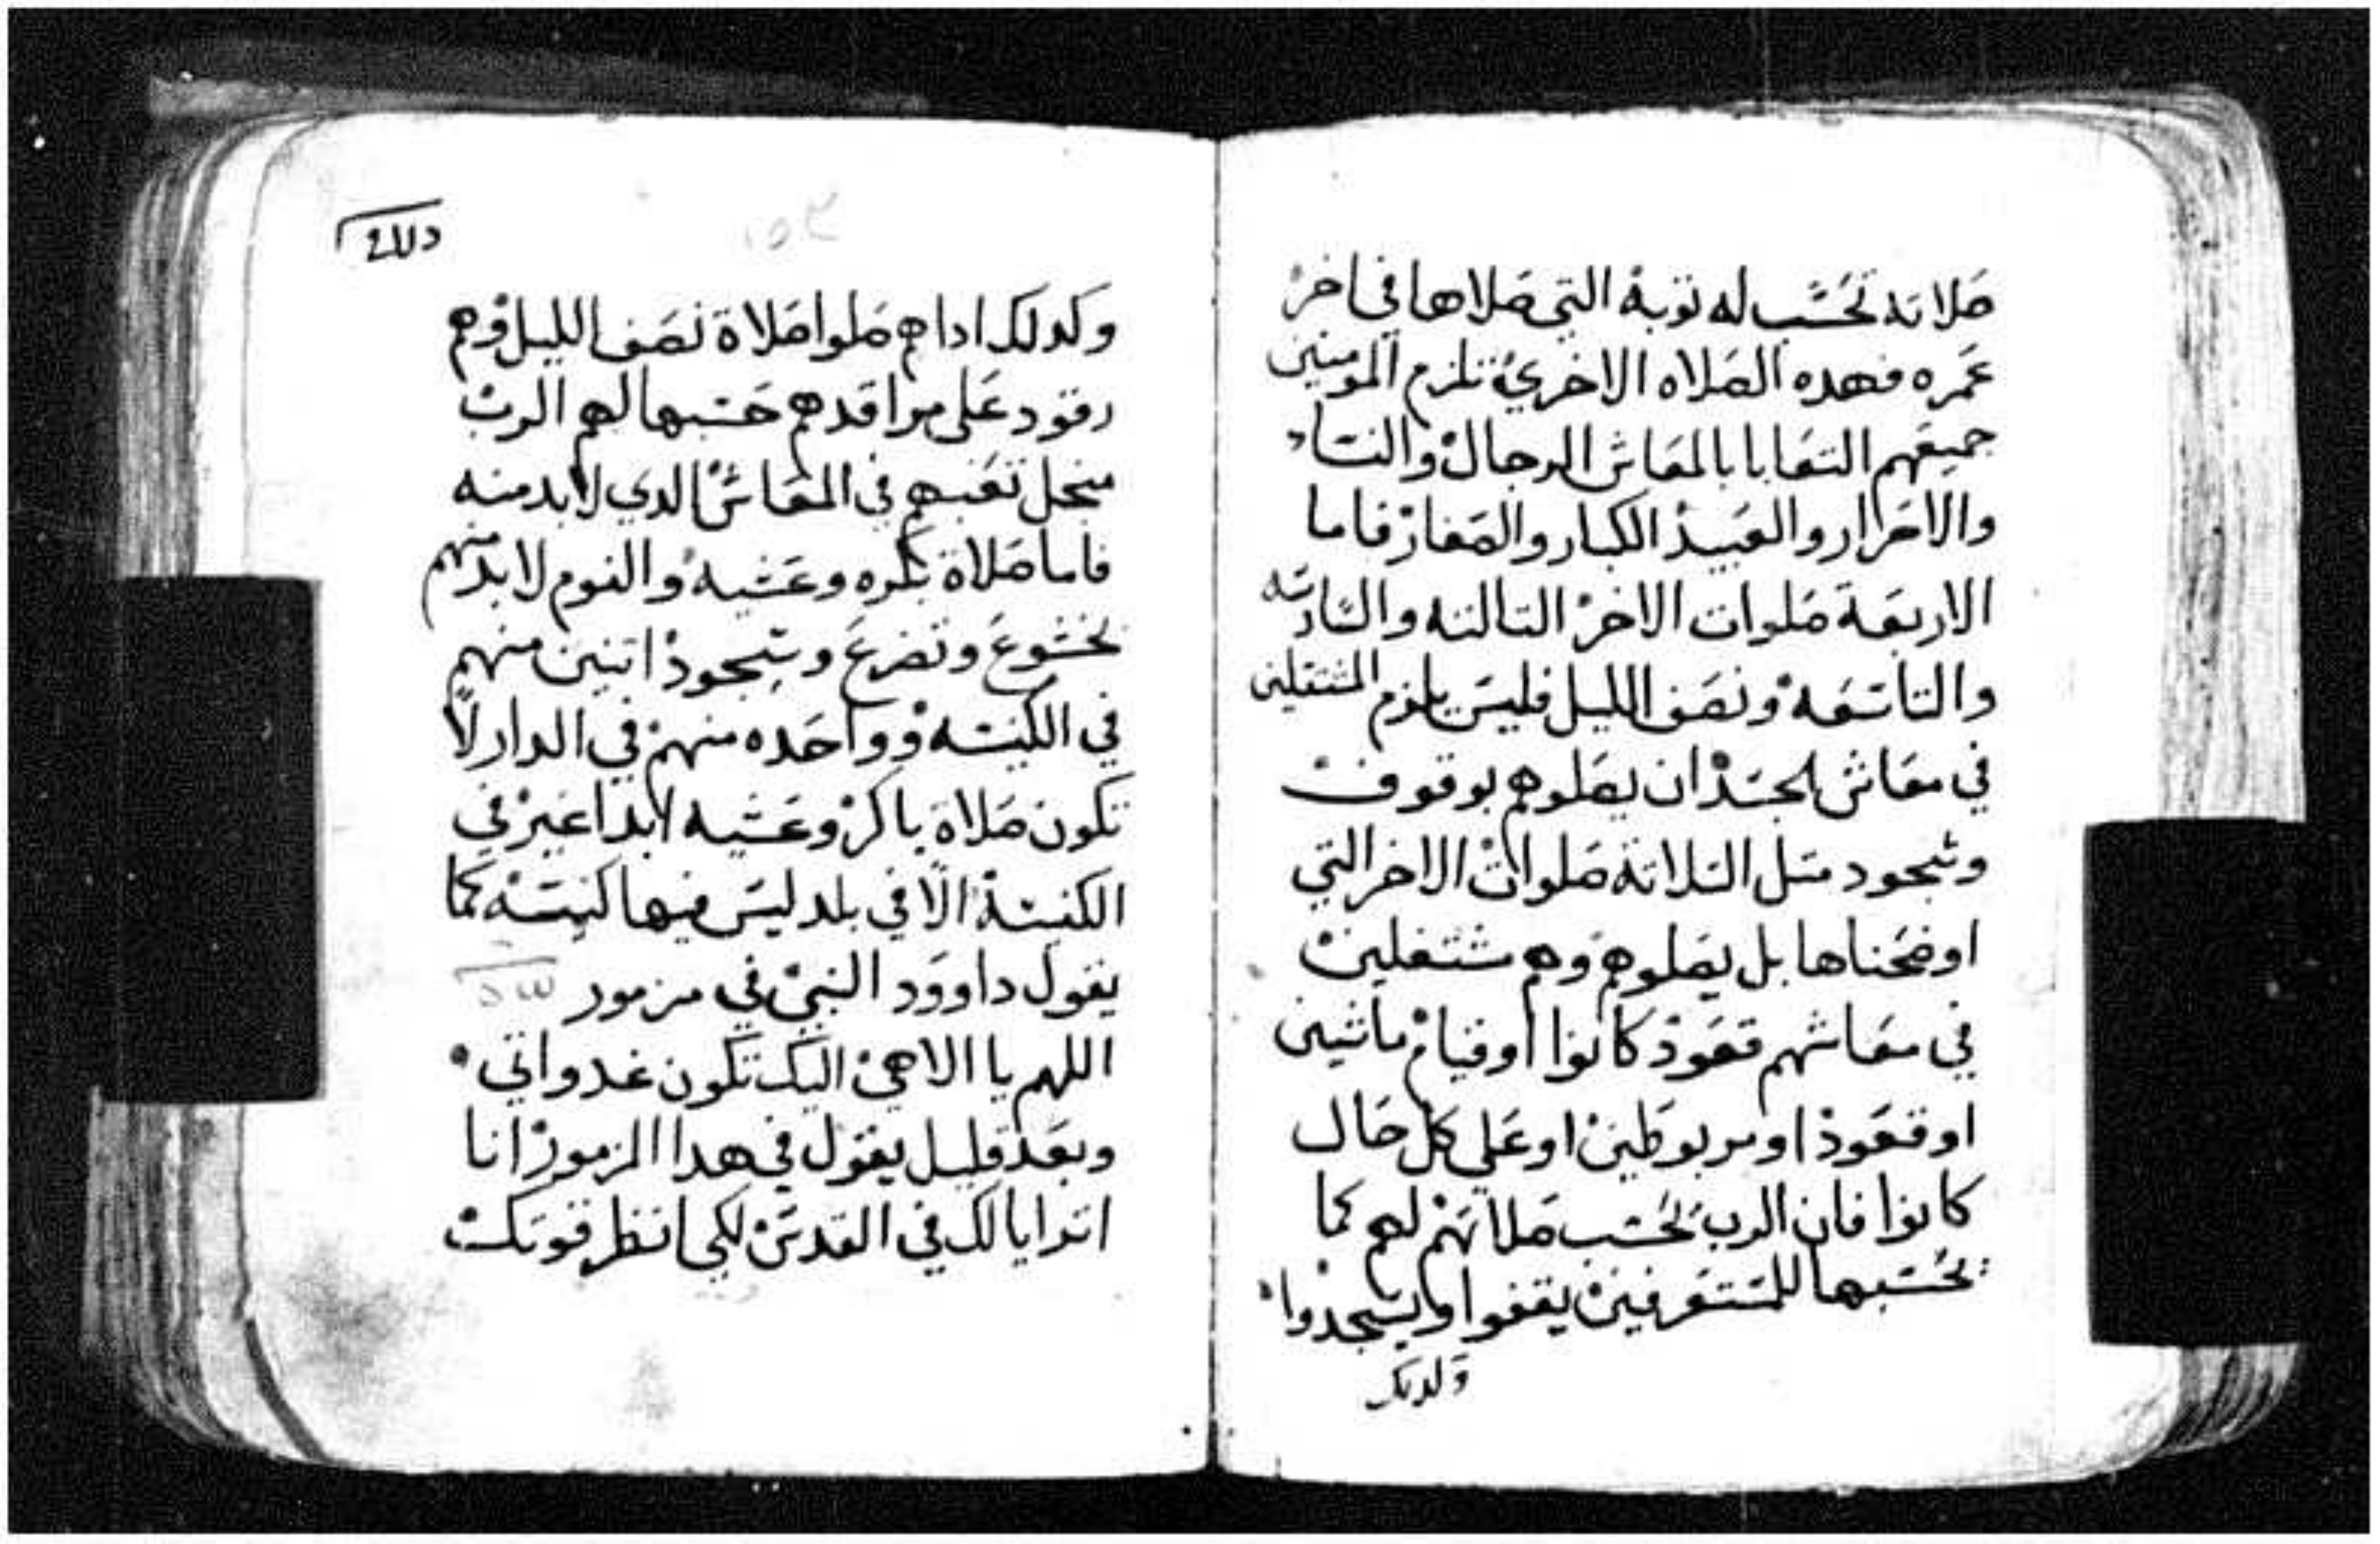 صلاته تحسب له توبة التي صلاها في اخر
عمره فهده الصلاه الاخري تلزم المومنين
جميعهم التعابا بالمعاش الرجال والنساء
والاحرار والعبيد الكبار والصغار فاما
الاربعة صلوات الاخر التالته والسادسه
والتاسعه ونصف الليل فليس يلزم المشتغلين
في معاش الجسد ان يصلوهم بوقوف
وسجود متل التلاتة صلوات الاخر التي
اوضحناها بل يصلوهم وهم مشتغلين
في معاشهم قعود كانوا اوقيام ماشيين
او قعود او مربوطين او علي كل حال
كانوا فان الرب يحسب صلاتهم لهم كما
يحسبها للمتفرغين يقفوا ويسجدوا
وكدلك
وكدلك اداهم صلوا صلاة نصف الليل وهم
رقود على مراقدهم حسبها لهم الرب
منجل تعبهم في المعاش الدي لابد منه
فاما صلاة بكره وعشيه والنوم لا بد منهم
بخشوع وتضرع وسجود اتنين منهم
في الكنيسه وواحده منهم في الدار لا
تكون صلاة باكر وعشيه ابدا غير في
الكنيسة الا في بلد ليس فيها كنيسه كما
يقول داوود النبي في مزمور
اللهم يا الاهي اليك تكون غدواتي
وبعد قليل يقول في هدا المزمور انا
اترايا لك في القدس لكي انظر قوتك